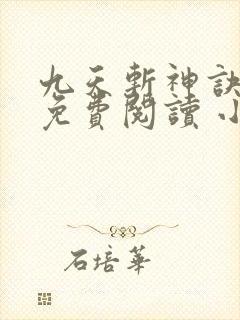 九天斬神訣
免費閱讀 小
石培華